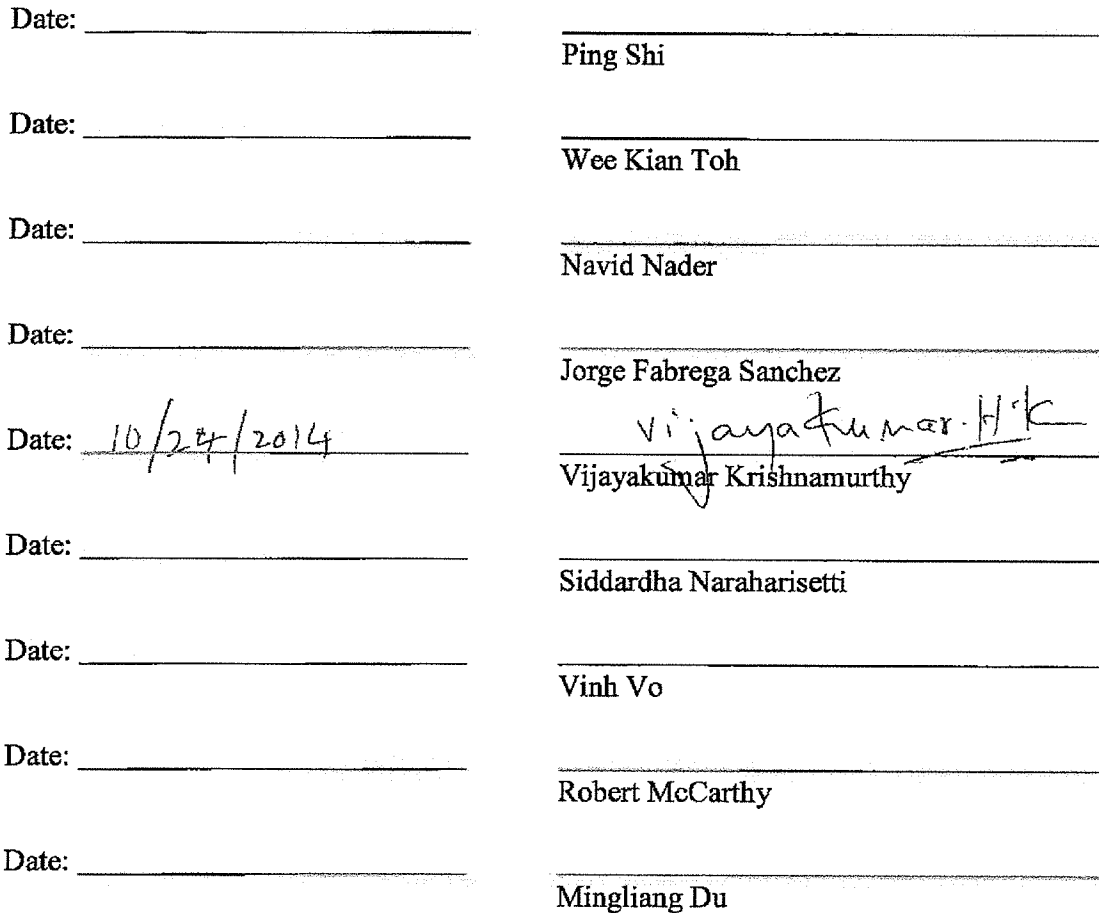 Date:
Ping Shi
Date:
Wee Kian Toh
Date:
Navid Nader
Date:
Jorge Fabrega Sanchez
Date: 10/24/2014 Vijayakumar.H.K
Vijayakumar Krishnamurthy
Date:
Siddardha Naraharisetti
Date:
Vinh Vo
Date:
Robert McCarthy
Date:
Mingliang Du